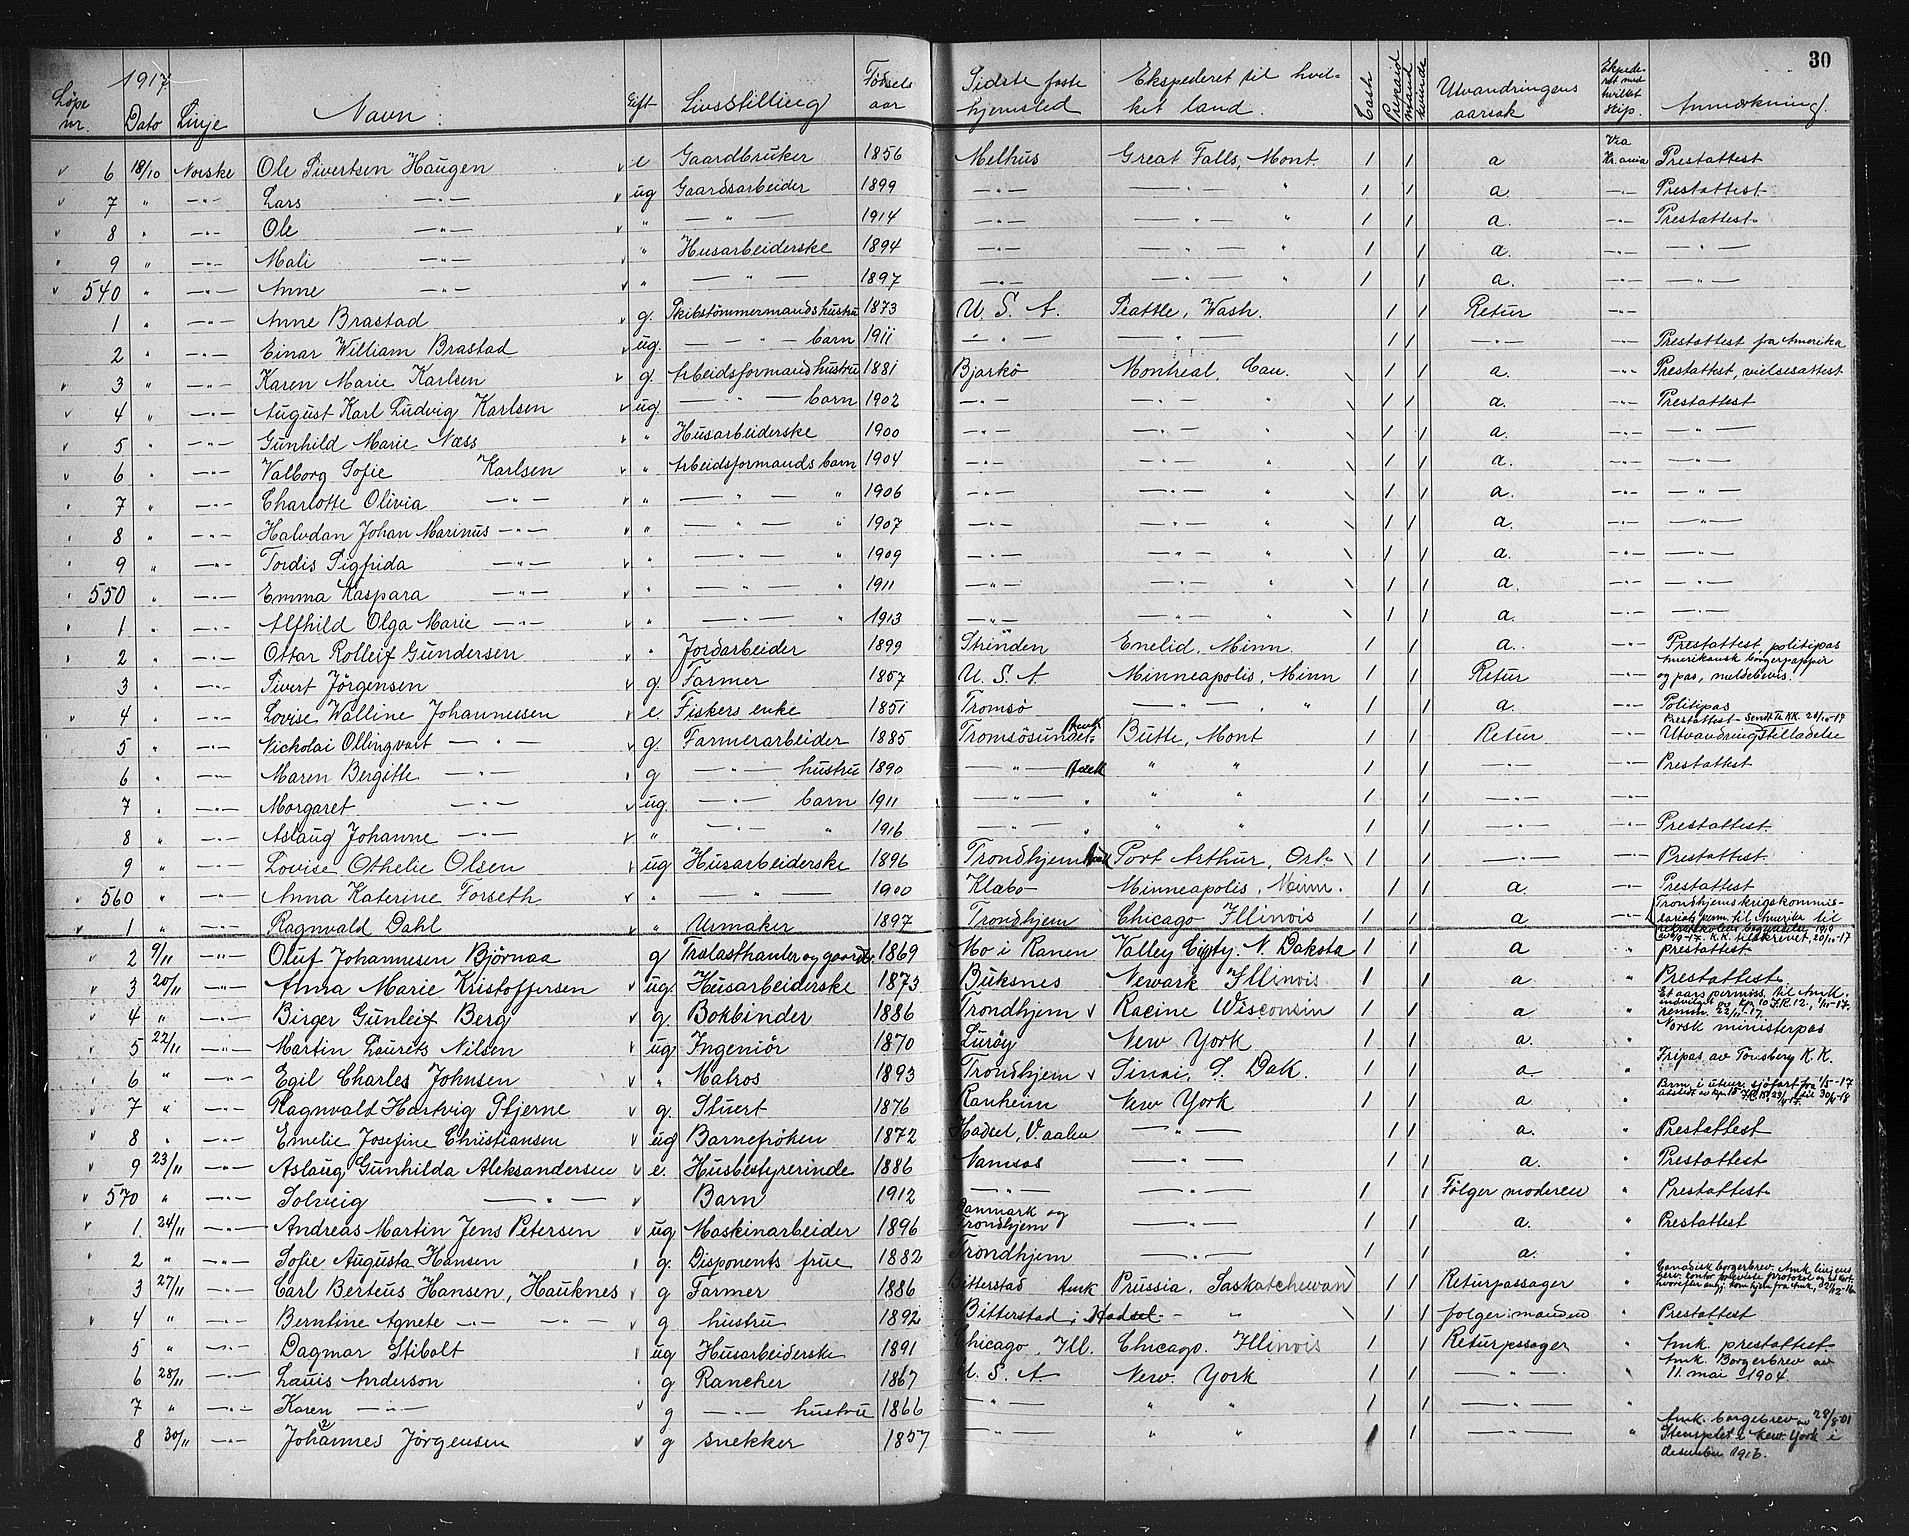 30
1917
Löpe nr. Dato Linje Navn: Gift Livsstilling Fødsels aar Sidste faste hjemsted Ekspederet til hvilket land. Cash Prepaid mand kvinde Utvandringens aarsak Ekspederet med hvilket skip. Anmærkning.
6 18/10 Norske Ole Sivertsen Haugen e Gaardbruker 1856 Melhus Great Falls, Mont. 1 1 a Via Kr.ania Prestattest
7 " —"— Lars —"— ug Gaardsarbeider 1899 —"— —"— " 1 1 a. —"— Prestattest
8 " —"— Ole —"— " —"— 1914 —"— —"— " 1 1 a. —"— Prestattest
9 " —"— Mali —"— " Husarbeiderske 1894 —"— —"— " 1 1 a. —"— —"—
540 " —"— Anne —"— " —"— 1897 —"— —"— " 1 1 a. —"— —"—
1 " —"— Anne Brastad g. Skibstömmermandshustru 1873 U. S. A. Seattle, Wash. 1 1 Retur —"—
2 " —"— Einar William Brastad ug. —"— barn 1911 —"— —"— 1 1 —"— Prestattest fra Amerika
3 " —"— Karen Marie Karlsen g. Arbeidsformandhustru 1881 Bjarkö Montreal, Can. \ 1 1 a. —"— Prestattest, vielsesattest
4 " —"— August Karl Ludvig Karlsen ug. —"— barn 1902 —"— —"— " \ 1 1 a. —"— Prestattest
5 " —"— Gunhild Marie Næss " Husarbeiderske 1900 —"— —"— " \ 1 1 a. —"— —"—
6 " —"— Valborg Sofie Karlsen " Arbeidsformands barn 1904 —"— —"— " \ 1 1 a. —"— —"—
7 " —"— Charlotte Olivia —"— " —"— " 1906 —"— —"— " \ 1 1 a. —"— —"—
8 " —"— Halvdan Johan Marinus —"— " —"— " 1907 —"— —"— " \ 1 1 a. —"— —"—
9 " —"— Tordis Sigfrida —"— " —"— " 1909 —"— —"— " \ 1 1 a. —"— —"—
550 " —"— Emma Kaspara —"— " —"— " 1911 —"— —"— " \ 1 1 a. —"— —"—
1 " —"— Alfhild Olga Marie —"— " —"— " 1913 —"— —"— " \ 1 1 a. —"— —"—
2 " —"— Ottar Rolleif Gundersen " Jordarbeider 1899 Strinden Enelid, Minn. 1 1 a. —"— Prestattest politipas
3 " —"— Sivert Jörgensen g. Farmer 1857 U. S. A Minneapolis, Minn 1 1 Retur —"— Amerikansk borgerpapper og pas, meldebevis.
4 " —"— Lovise Walline Johannessen e. Fiskers enke 1851 Tromsö —"— " " 1 1 a. —"— Politipas
5 " —"— Nickolai Ollingvart —"— g. Farmerarbeider 1885 Tromsösundet Amk Butte, Mont 1 1 Retur —"— Prestattest sendt Tr. KK. 20/10-17 Utvandringstilladelse
6 " —"— Maren Bergitte —"— g —"— hustru 1890 —"— Amk " " 1 1 —"— —"— Prestattest
7 " —"— Morgaret —"— ug. —"— barn 1911 —"— " " " 1 1 —"— —"—
8 " —"— Aslaug Johanne —"— " —"— " 1916 —"— " " " 1 1 —"— Prestattest
9 " —"— Lovise Othelie Olsen ug Husarbeiderske 1896 Trondhjem Port Arthur, Ont. \ 1 1 —"— —"— Prestattest
560 " —"— Anna Katerine Forseth " —"— 1900 Klæbo Minneapolis, Minn. 1 1 a —"— Prestattest
1 " —"— Ragnvald Dahl " Urmaker 1897 Trondhjem Chicago Illinois 1 1 a —"— Trondhjems krigskommissariats perm. til Amerika til
2 9/11 —"— Oluf Johannesen Bjørnaa g Trælasthanler og gaardbr. 1869 Mo i Ranen Valley City, N. Dakota 1 1 a " Prestattest.
3 20/11 —"— Anna Marie Kristoffersen ug. Husarbeiderske 1873 Buksnes Newark Illinois 1 1 a " Prestattest
4 " —"— Birger Gunleif Berg g. Bokbinder 1886 Trondhjem Racine Wisconsin 1 1 a " Et aars permiss. til Amk.
5 22/11 —"— Martin Laurits Nilsen ug Ingeniör 1870 Luröy New York 1 1 a. " Norsk ministerpas
6 " —"— Egil Charles Johnsen " Matros 1893 Trondhjem Sinai, S. Dak. 1 1 a " Fripas av Tönsberg K. K.
7 " —"— Ragnvald Hartvig Stjerne g. Stuert 1876 Ranheim New York 1 1 a. "
8 " —"— Emelie Josefine Christiansen ug Barnefröken 1872 Hadsel, V. aalen —"— 1 1 a. " Prestattest
9 23/11 —"— Aslaug Gunhilda Aleksandersen e. Husbestyrerinde 1886 Namsos —"— 1 1 a. " Prestattest
570 " —"— Solveig —"— Barn 1912 —"— —"— 1 1 Følger moderen " Prestattest
1 24/11 —"— Andreas Martin Jens Petersen ug Maskinarbeider 1896 Danmark og Trondhjem —"— 1 1 a. " Prestattest
2 " —"— Sofie Augusta Hansen g. Disponents frue 1882 Trondhjem —"— 1 1 a. "
3 27/11 —"— Carl Berteus Hansen, Hauknes g Farmer 1886 Bitterstad Amk Prussia, Saskatchewan \ 1 1 Returpassager " Canadisk borgerbrev.
4 " —"— Berntine Agnete —"— —"— g hustru 1892 Bitterstad i Hadsel —"— " \ 1 1 følger manden " Prestattest
5 " —"— Dagmar Stibolt ug Husarbeiderske 1891 Chicago, Ill. Chicago. Illinois 1 1 Returpassager " Amk. prestattest
6 28/11 —"— Lauis Anderson g Rancher 1867 U. S. A. New. York 1 1 —"— " Amk. Borgerbrev av 11. mai 1904.
7 " —"— Karen —"— g —"— hustru 1866 —"— " " 1 1 —"—
8 30/11 —"— Johannes Jörgensen g snekker 1857 —"— " " 1 1 —"— " Amk. borgebrev av 28/8-01 Stemplet i New York i desember 1916.